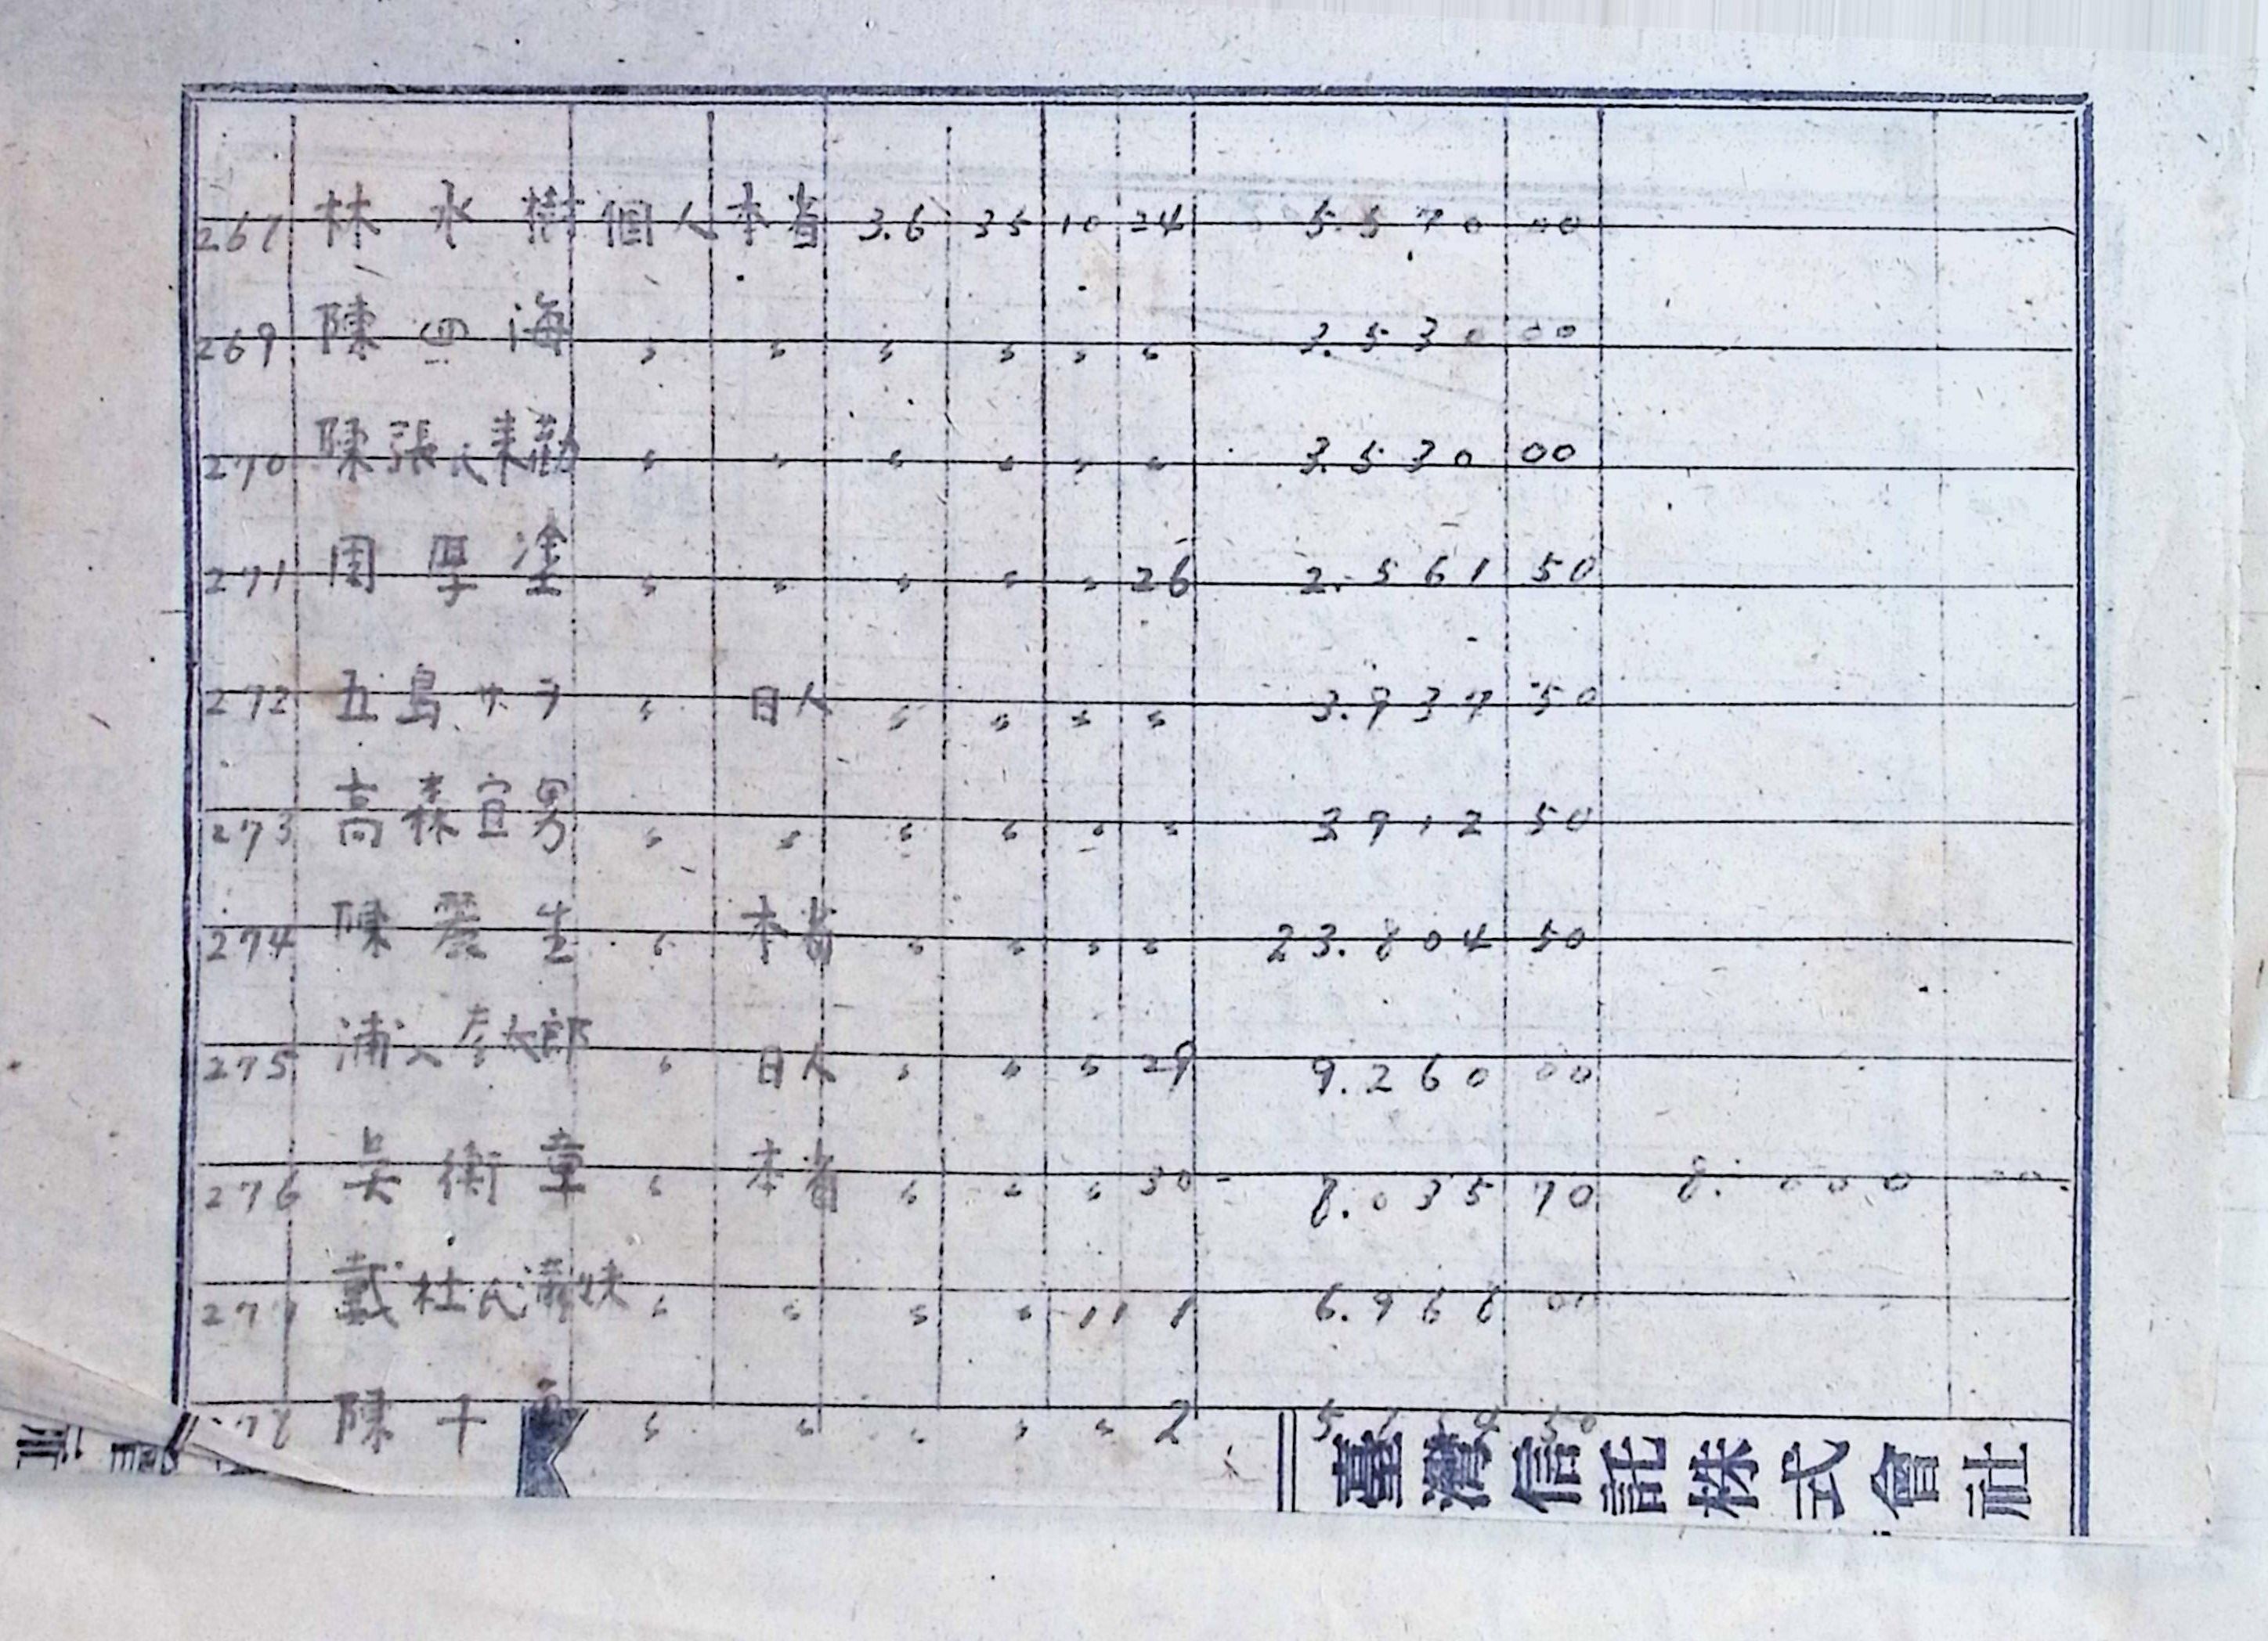 267 林水樹 個人 本省 3.6 35 10 24 5.570 00
269 陳四海 〃 〃 〃 〃 〃 〃 3.530 00
270 陳張氏 〃 〃 〃 〃 〃 〃 3.530 00
271 周厚塗 〃 〃 〃 〃 〃 26 2.561 50
272 五島サヲ 〃 日人 〃 〃 〃 〃 3.937 50
273 高森宣男 〃 〃 〃 〃 〃 〃 3912 50
274 陳震生 〃 本省 〃 〃 〃 〃 23.804 50
275 浦 太郎 〃 日人 〃 〃 〃 29 9.260 00
276 吳衛章 〃 本省 〃 〃 〃 30 8.035 70 8.000 00
277 戴杜氏滿妹 〃 〃 〃 〃 11 1 6.966
陳千 〃 〃 〃 〃 〃 2 50
臺灣信託株式會社